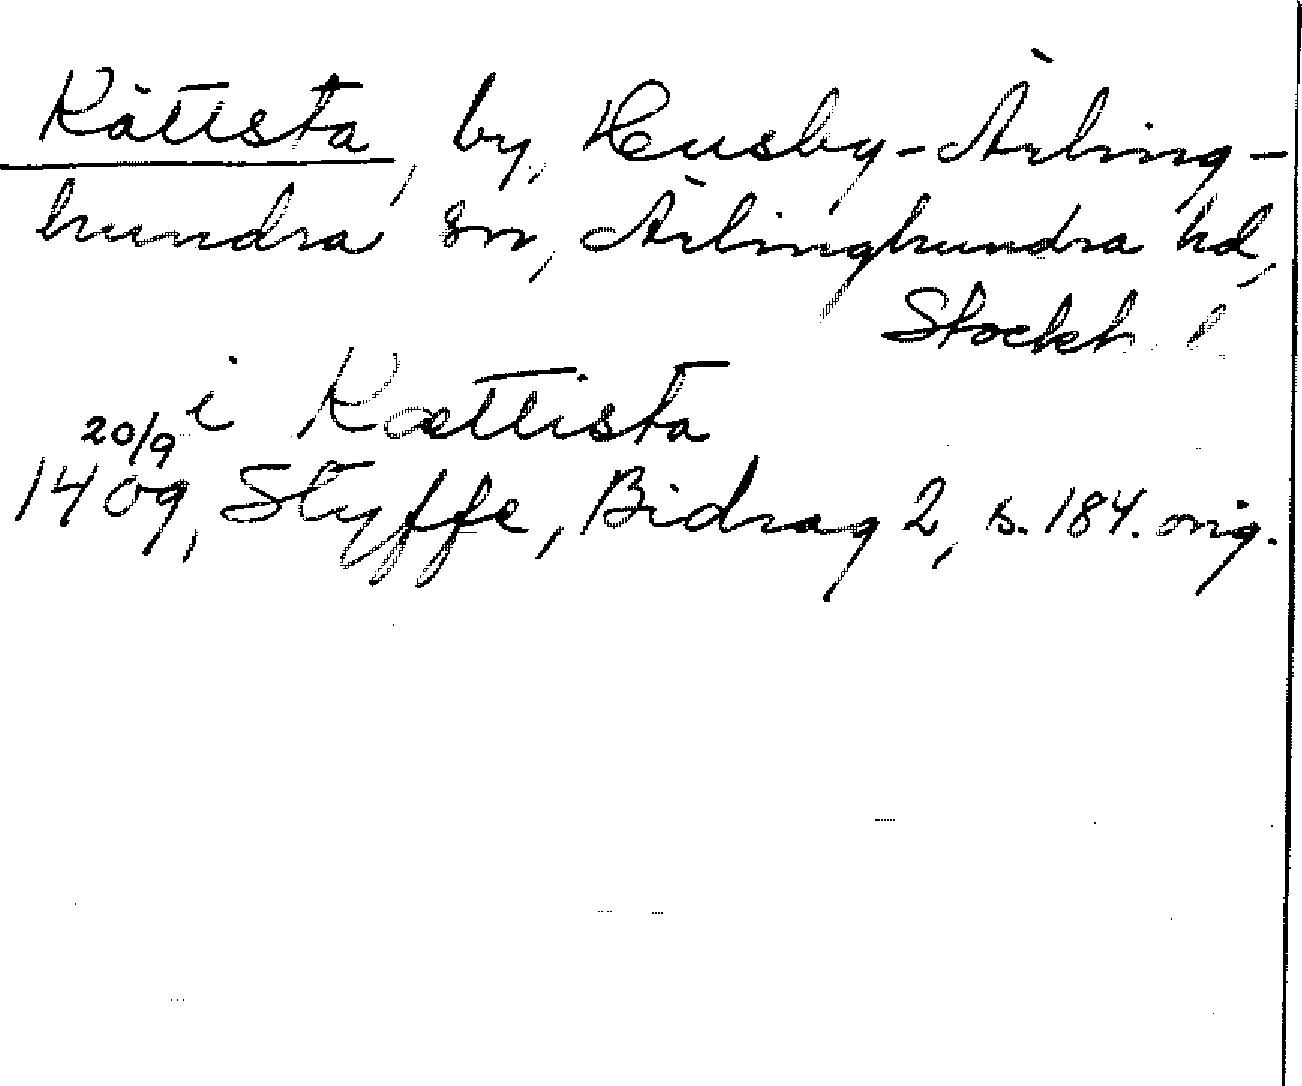 Kättsta, by, Husby-Ärling-
hundra sn, Ärlinghundra hd,
Stockh. l.
i Kættista
20/9
1409, Styffe, Bidrag 2, s. 184. orig.